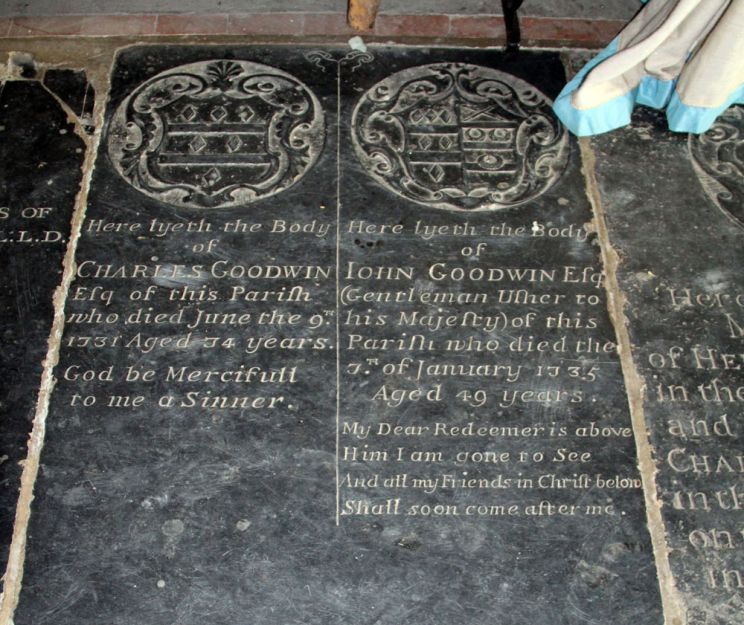 S OF
L.L.D.
Here lyeth the Body
of
CHARLES GOODWIN
Eſq of this Pariſh
who died June the 9.TH
1731 Aged 74 years.
God be Mercifull
to me a Sinner.
Here lyeth the Body
of
IOHN GOODWIN Eſq
(Gentleman Uſher to
his Majeſty) of this
Pariſh who died the
7.TH of January 1735
Aged 49 years.
My Dear Redeemer is above
Him I am gone to See
And all my Friends in Chriſt below
Shall soon come after me.
Here
of HE
in the
and
CHA
in th
on
in